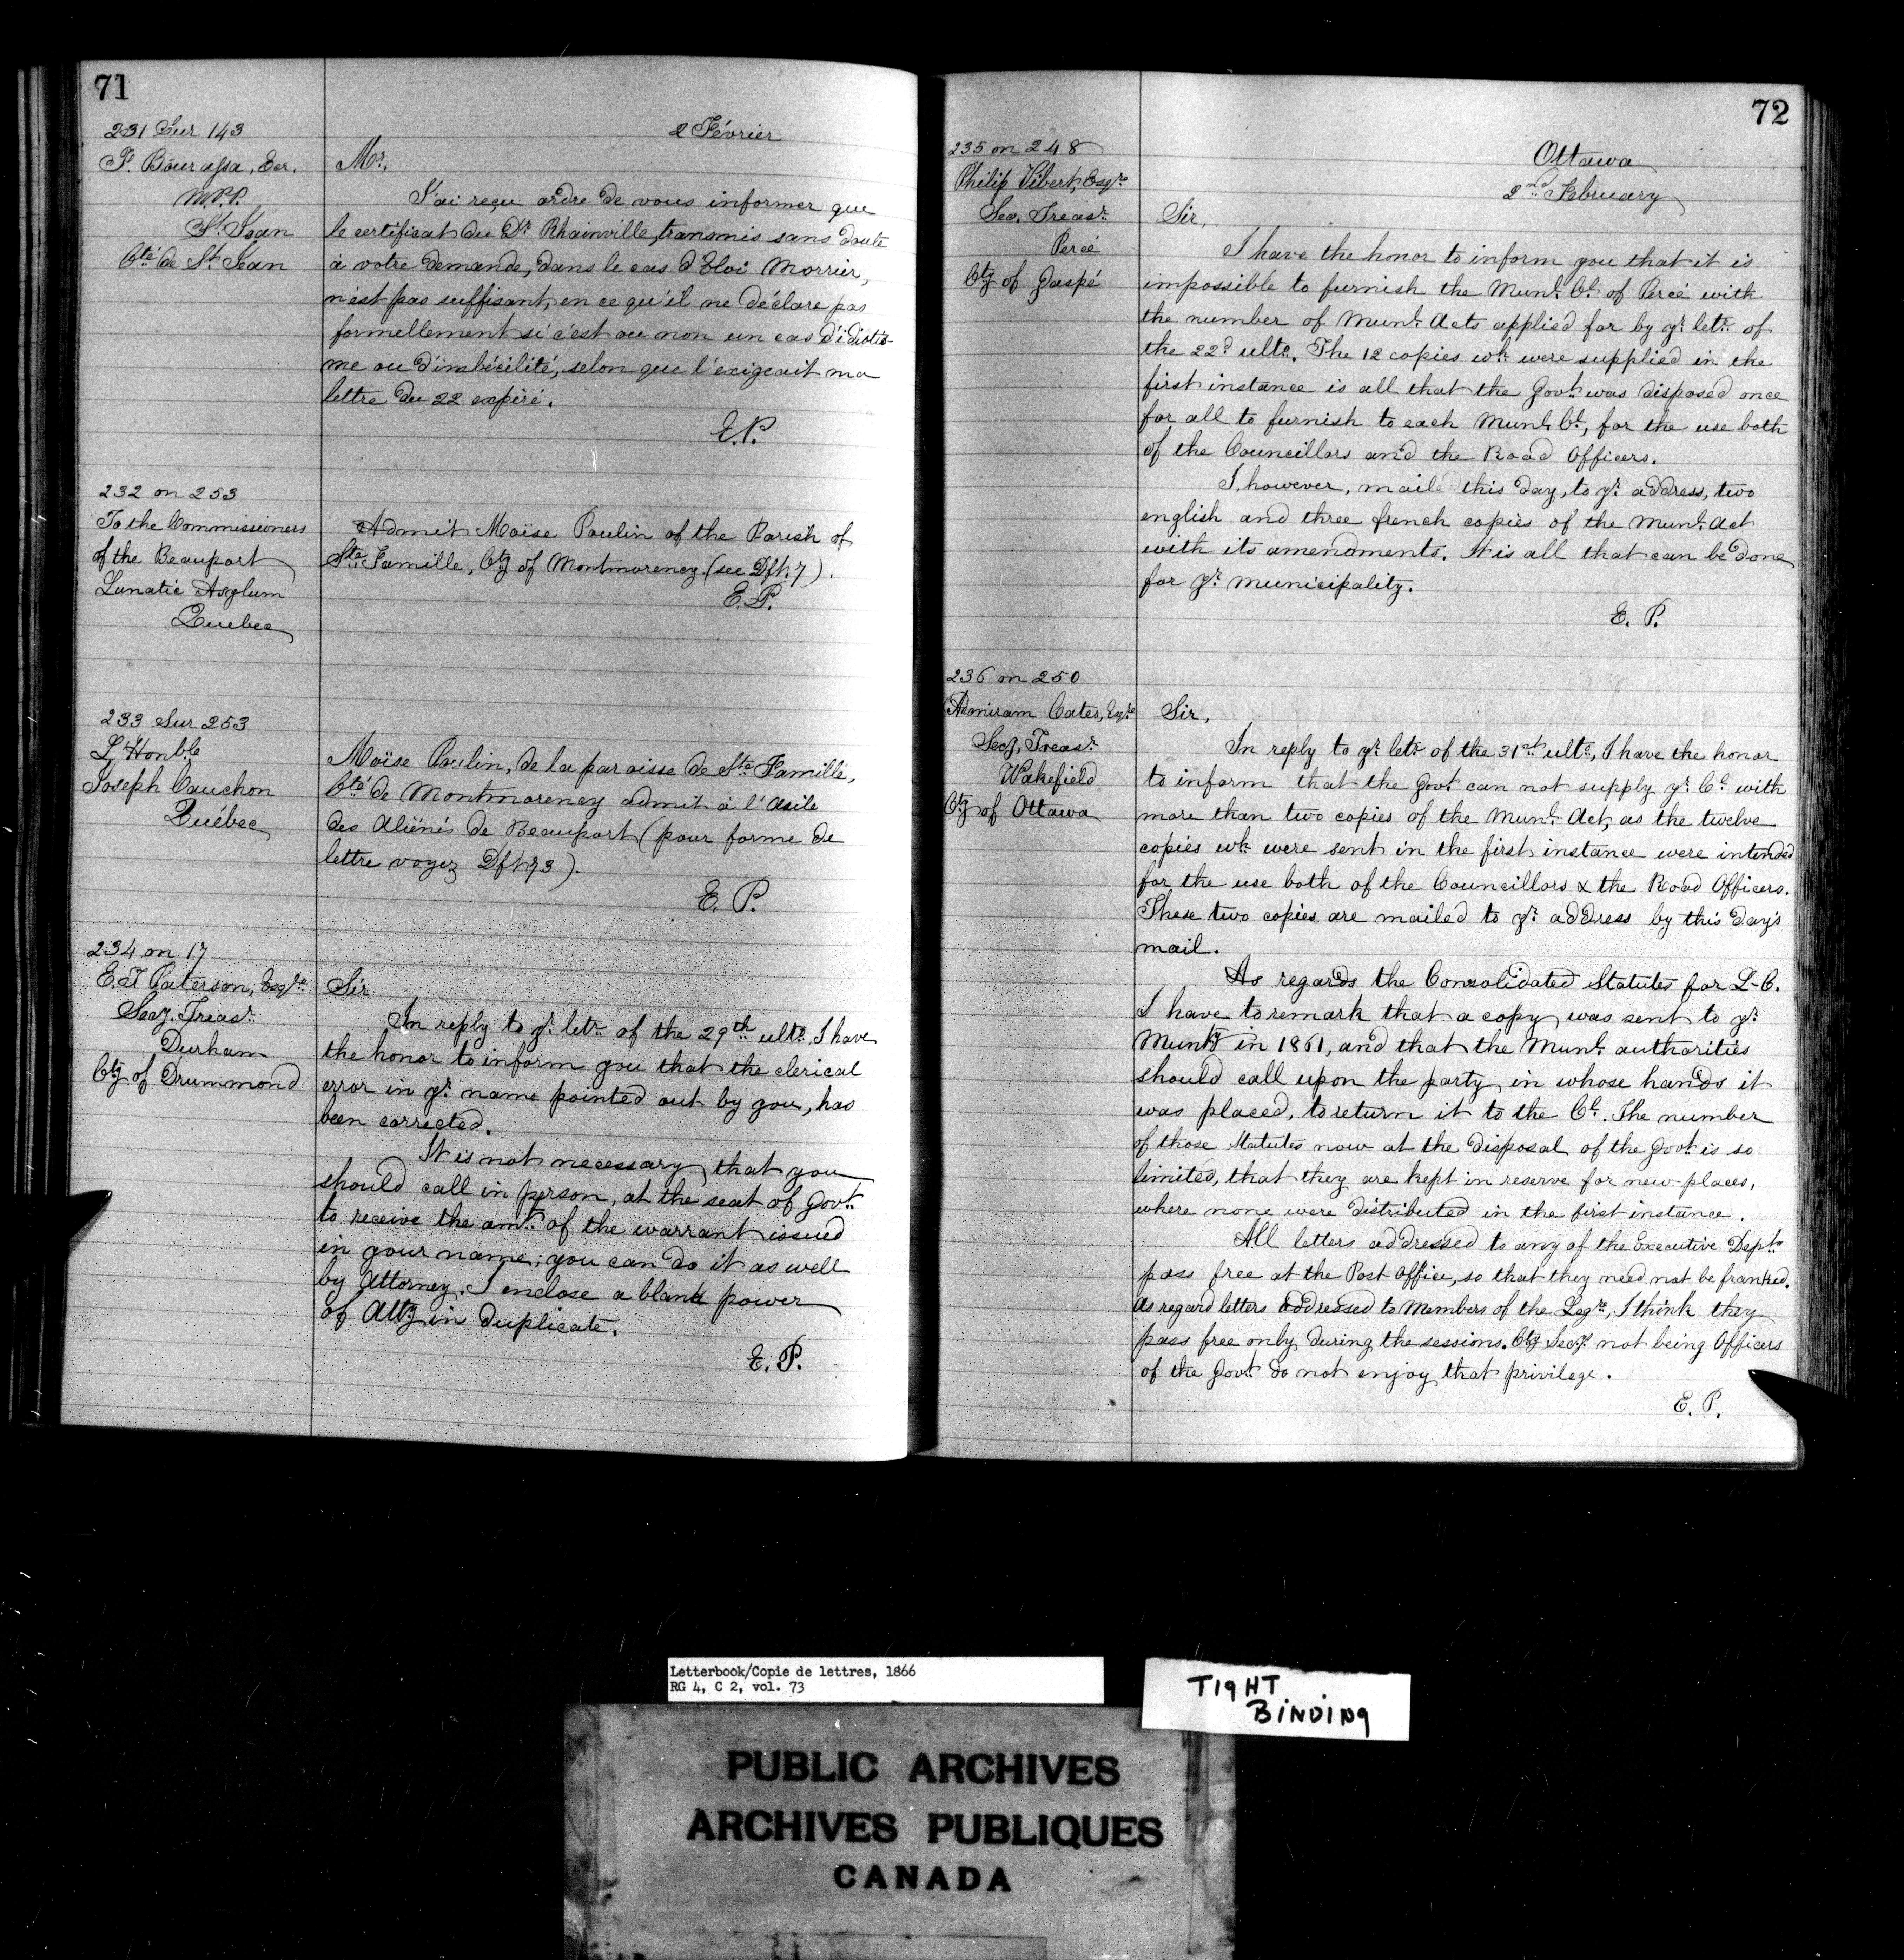 71
231 Sur 143
F. Bourassa, Ecr.
M.P.P.
St. Jean
Cté de St. Jean
2 Février
Mr.
J'ai reçu ordre de vous informer que
le certificat du Dr. Rhainville, transmis sans doute
à votre demande, dans le cas d'Eloi Morrier,
n'est pas suffisant, en ce qu'il ne déclare pas
formellement si c'est ou non un cas d'idiotis-
me ou d'imbécilité, selon que l'exigeait ma
lettre du 22 expiré.
E.P.
232 on 253
To the Commissioners
of the Beauport
Lunatic Asylum
Quebec
Admit Moïse Poulin of the Parish of
Ste. Famille, Cty of Montmorency (see Dft. 7).
E.P.
233 Sur 253
L'Honble
Joseph Cauchon
Québec
Moïse Poulin, de la paroisse de Ste. Famille,
Cté de Montmorency admit à l'Asile
des Aliénés de Beauport (pour forme de
lettre voyez Dft. 73).
E. P.
234 on 17
E.T Paterson, Esqre.
Secy. Treasr.
Durham
Cty of Drummond
Sir
In reply to yr. letr. of the 29th ulto. I have
the honor to inform you that the clerical
error in yr. name pointed out by you, has
been corrected.
It is not necessary that you
should call in person, at the seat of Govt.
to receive the amt. of the warrant issued
in your name; you can do it as well
by Attorney. I enclose a blank power
of Atty in duplicate.
E. P.
72
235 on 248
Philip Vibert, Esqre
Sec. Treasr.
Percé
Cty of Gaspé
Ottawa
2nd February
Sir,
I have the honor to inform you that it is
impossible to furnish the Munl. Cl. of Percé with
the number of Munl. Acts applied for by yr. letr. of
the 22d ulto. The 12 copies wh. were supplied in the
first instance is all that the Govt. was disposed once
for all to furnish to each Munl. Cl., for the use both
of the Councillors and the Road Officers.
I, however, mail this day, to yr. address, two
english and three french copies of the Munl. Act
with its amendments. It is all that can be done
for yr. municipality.
E. P.
236 on 250
Admiram Cates, Esqre
Secy. Treasr.
Wakefield
Cty of Ottawa
Sir,
In reply to yr. letr. of the 31st ulto, I have the honor
to inform that the Govt. can not supply yr. Cl. with
more than two copies of the Munl. Act, as the twelve
copies wh. were sent in the first instance were intended
for the use both of the Councillors & the Road Officers.
These two copies are mailed to yr. address by this day's
mail.
As regards the Consolidated Statutes for L-C.
I have to remark that a copy was sent to yr.
Munty in 1861, and that the Munl. authorities
should call upon the party in whose hands it
was placed, to return it to the Cl. The number
of those Statutes now at the disposal of the Govt. is so
limited, that they are kept in reserve for new places,
where none were distributed in the first instance.
All letters addressed to any of the Executive Depts.
pass free at the Post Office, so that they need not be franked.
As regard letters addressed to Members of the Legre., I think they
pass free only during the sessions. Cty Secys. not being Officers
of the Govt. do not enjoy that privilege.
E. P.
Letterbook/Copie de lettres, 1866
RG 4, C 2, vol. 73
TIGHT
BINDING
PUBLIC ARCHIVES
ARCHIVES PUBLIQUES
CANADA